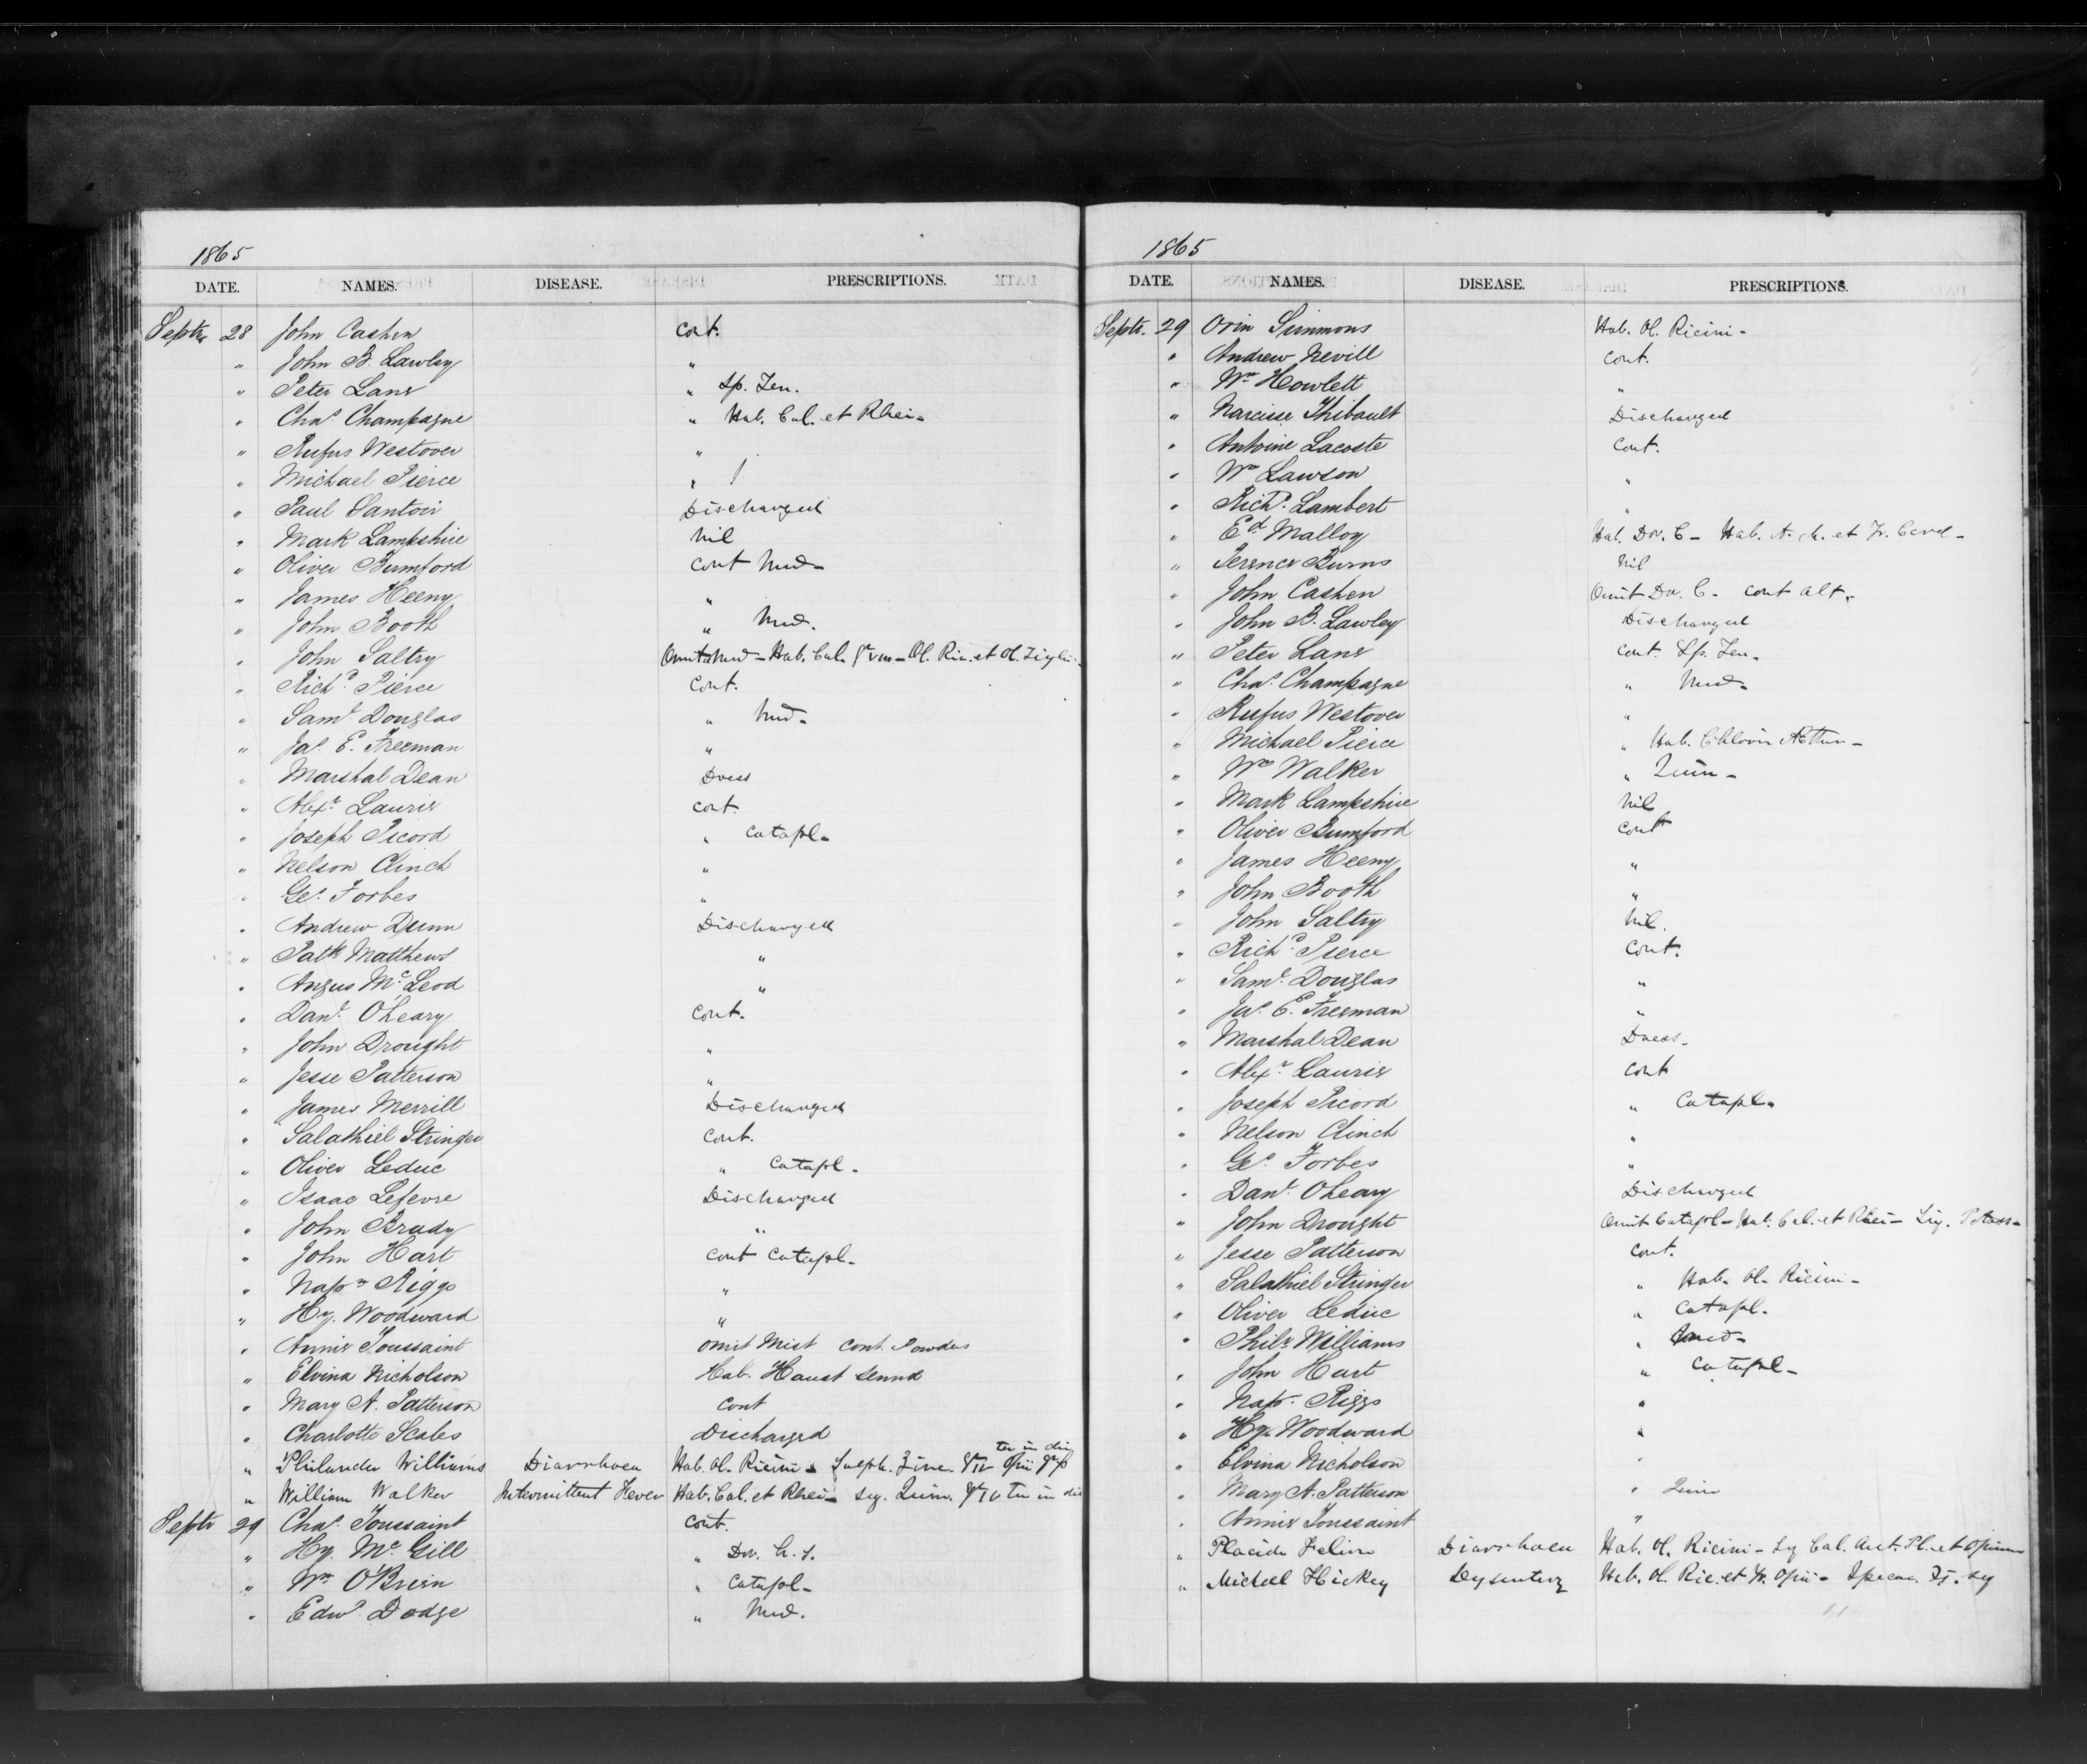 1865
DATE. NAMES. DISEASE. PRESCRIPTIONS.
Septr. 28 John Cashen cont.
" John B. Lawley "
" Peter Lane " Sp. Len.
" Chas. Champagne " Hab. Cal. et Rhei -
" Rufus Westover "
" Michael Pierce "
" Paul Santoir Discharged
" Mark Lampshire nil
" Oliver Bumford cont Med -
" James Heeny "
" John Booth " Med.
" John Saltry Omit Med - Hab. Cal. - Ol. Ric. et Ol.
" Richd. Pierce Cont.
" Saml. Douglas " Med -
" Jas. E. Freeman "
" Marshal Dean Dress
" Alexr. Laurie cont.
" Joseph Picord " Catapl -
" Nelson Clinch "
" Geo. Forbes "
" Andrew Dunn Discharged
" Patk. Matthews "
" Angus McLeod "
" Danl. O'Leary Cont.
" John Drought "
" Jesse Patterson "
" James Merrill Discharged
" Salathiel Stringer Cont.
" Oliver Leduc " Catapl -
" Isaac Lefevre Discharged
" John Brady "
" John Hart Cont Catapl -
" Napn. Riggs "
" Hy. Woodward "
" Annie Toussaint omit Mist Cont. Powders
" Elvina Nicholson Hab. Haust Senna
" Mary A. Patterson Cont
" Charlotte Scales Discharged
" Philander Williams Diarrhoea Hab. Ol. Ricini - Sulph. Zinc. ter in die
" William Walker Intermittent Fever Hab. Cal. et Rhei - Quin. ter in die
Septr 29 Chas. Toussaint Cont.
" Hy. McGill " Dov. h. s.
" Wm. O'Brien " Catapl -
" Edwd. Dodge " Med.
1865
DATE. NAMES. DISEASE. PRESCRIPTIONS.
Septr. 29 Orin Simmons Hab. Ol. Ricini -
" Andrew Nevill Cont.
" Wm Howlett "
" Narcisse Thibault Discharged
" Antoine Lacoste Cont.
" Wm Lawson "
" Richd. Lambert "
" Ed Malloy Hab. Dov. C - Hab.
" Terence Burns Nil
" John Cashen Omit Dov. C - cont alt.
" John B. Lawley Discharged
" Peter Lane Cont. Sp. Len.
" Chas. Champagne " Med -
" Rufus Westover "
" Michael Pierce " Hab.
" Wm Walker " Quin -
" Mark Lampshire Nil
" Oliver Bumford Cont
" James Heeny "
" John Booth "
" John Saltry Nil.
" Richd. Pierce Cont.
" Saml. Douglas "
" Jas. E. Freeman "
" Marshal Dean Dress -
" Alexr. Laurie Cont
" Joseph Picord " Catapl -
" Nelson Clinch "
" Geo. Forbes "
" Danl. O'Leary Discharged
" John Drought Omit Catapl - Hab. Cal. et Rhei - Potass -
" Jesse Patterson Cont.
" Salathiel Stringer " Hab. Ol. Ricini -
" Oliver Leduc " Catapl -
" Philr. Williams " Med -
" John Hart " Catapl -
" Napn. Riggs "
" Hy. Woodward "
" Elvina Nicholson "
" Mary A. Patterson " Quin
" Annie Toussaint "
" Placide Diarrhoea Hab. Ol. Ricini - Cal. Acet. Pl. et Opium
" Michael Hickey Dysentery Hab. Ol. Ric. et Tr. Opii - Ipecac.